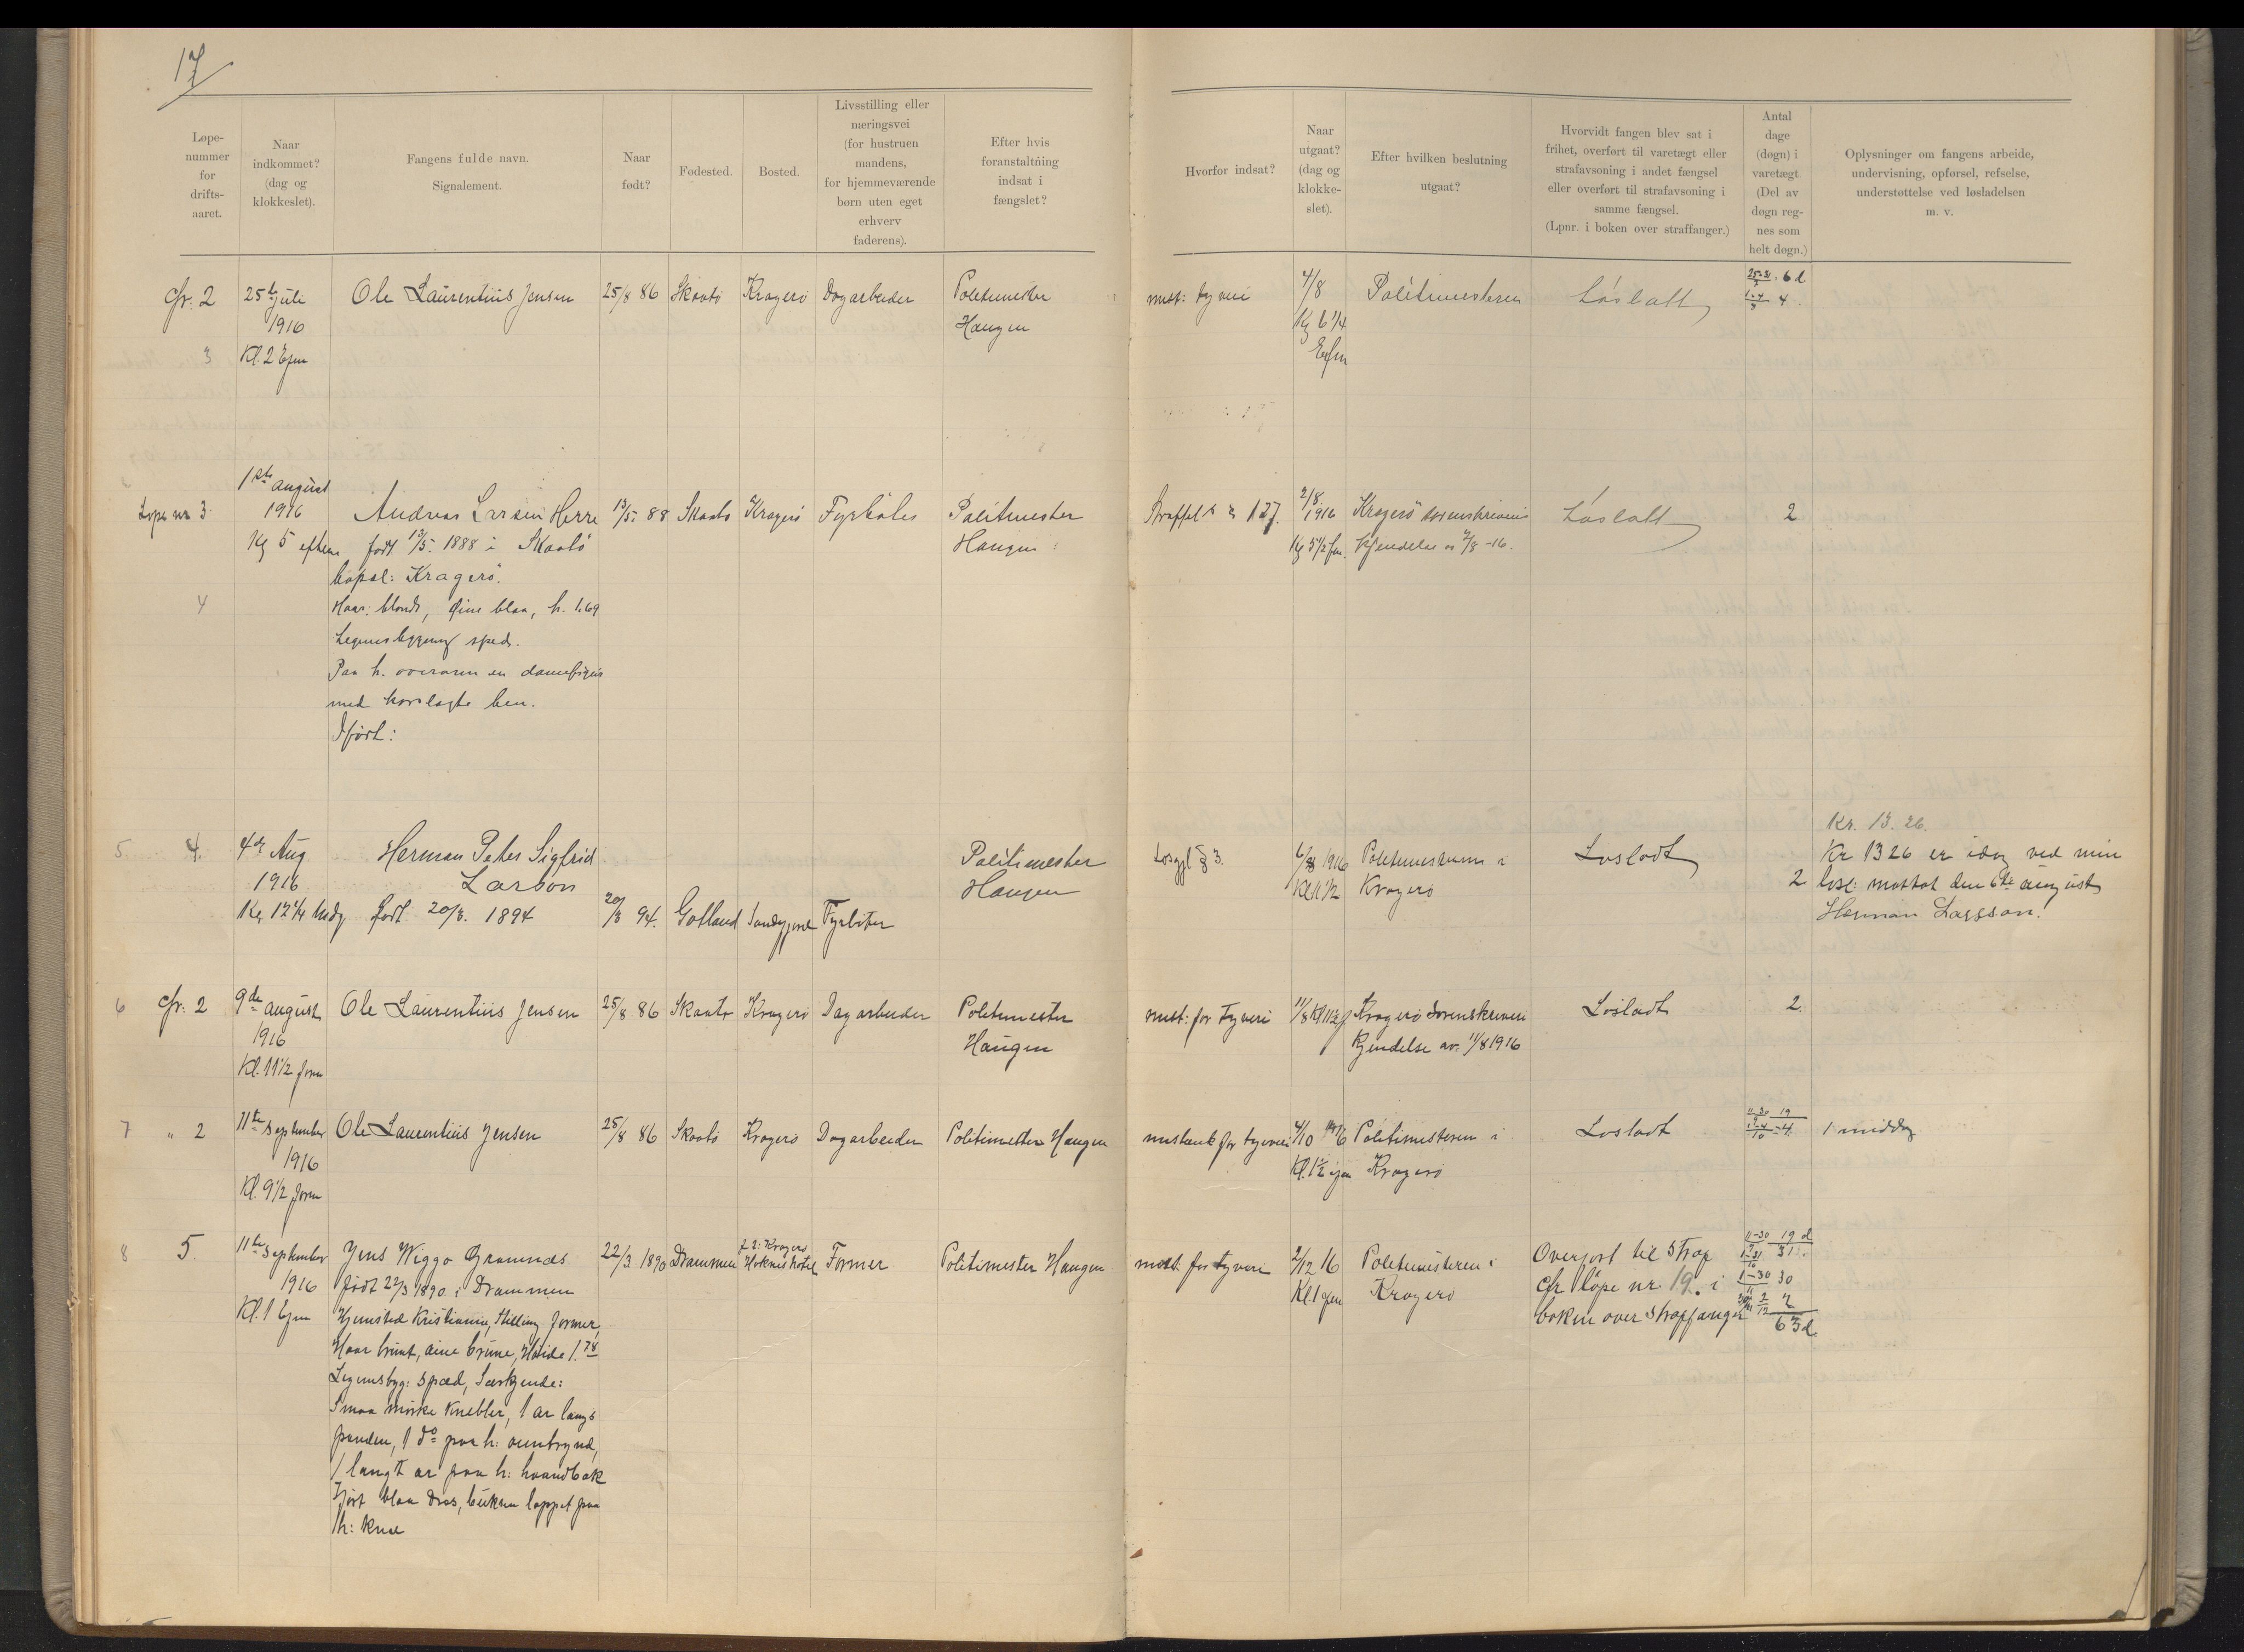 17
Løpe-
nummer
for
drifts-
aaret.
Naar
indkommet?
(dag og
klokkeslet).
Fangens fulde navn.
Signalement.
Naar
født?
Fødested.
Bosted.
Livsstilling eller
næringsvei
(for hustruen
mandens,
for hjemmeværende
børn uten eget
erhverv
faderens).
Efter hvis
foranstaltning
indsat i
fængslet?
Hvorfor indsat?
Naar
utgaat?
(dag og
klokke-
slet).
Efter hvilken beslutning
utgaat?
Hvorvidt fangen blev sat i
frihet, overført til varetægt eller
strafavsoning i andet fængsel
eller overført til strafavsoning i
samme fængsel.
(Lpnr. i boken over straffanger.)
Antal
dage
(døgn) i
varetægt
(Del av
døgn reg-
nes som
helt døgn.)
Oplysninger om fangens arbeide,
undervisning, opførsel, refselse,
understøttelse ved løsladelsen
m. v.
cfr. 2
3
25te juli
1916
Kl. 2 Efm
Ole Laurentius Jensen
25/8 86
Skaatö
Kragerö
Dagarbeider
Politimester
Haugen
mist: tyveri
4/8
Kl 6 1/4
Efm
Politimesteren
Løslatt
25-31 6 d.
7
1-4 4.
8
Løpe nr 3
4
1ste august
1916
Kl 5 efterm
Andreas Larsen Herre
født 13/5. 1888 i Skaatö
bopæl: Kragerö.
Haar: blondt, öine blaa, h. 1.69
Legemsbygning spæd.
Paa h. overarm en damefigur
med korslagte ben.
Iført:
13/5. 88
Skaatö
Kragerö
Fyrböter
Politimester
Haugen
Straffel § 127.
2/8
1916
Kl 5 1/2 fm.
Kragerö sorenskriveri
kjendelse av 2/8 -16.
Løslatt
2
5
4.
4de Aug
1916
Kl. 12 1/4 Midg
Herman Peter Sigfrid
Larson
født 20/8. 1894
20/8 94.
Gotland
Fyrböter
Politimester
Haugen
Løsgjl § 3.
6/8 1916
Kl 11 1/2
Politimesteren i
Kragerö
Løsladt
2
Kr. 13.26.
Kr 1326 er idag ved min
løsl: mottat den 6te august
Herman Larsson.
6
cfr. 2
9de august
1916
Kl. 11 1/2 form
Ole Laurentius Jensen
25/8 86
Skaatö
Kragerö
Dagarbeider
Politimester
Haugen
mist: for Tyveri
11/8 Kl 11 1/2 f
Kragerö Sorenskriveri
Kjendelse av. 11/8 1916
Løsladt
2.
7
" 2
11te September
1916
Kl. 9 1/2 form
Ole Laurentius Jensen
25/8 86
Skaatö
Kragerö
Dagarbeider
Politimester Haugen
mistank for tyveri
4/10 1916
Kl. 1 1/2 efm
Politimesteren i
Kragerö
Løsladt
11-30 19
9
1-4 = 4
10
1 middag
8
5.
11te September
1916
Kl. 1 Efm
Jens Wiggo Gramnæs
født 22/3 1890 i Drammen
Hjemsted Kristiania, Stilling former
Haar brunt, öine brune, Høide 1.78
Legemsbyg: spæd, Særkjende:
Smaa mørke Knebler, 1 ar langs
panden, 1 do paa h: øienbryn,
1 langt ar paa h: haandbak
Iført blaa Dres, buksen lappet paa
h: knæ
22/3 1890
Drammen
f. t: Kragerö
Former
Politimester Haugen
mist. for tyveri
2/12 16
Kl. 1 efm
Politimesteren i
Kragerö
Overført til Straf
cfr løpe nr 19. i
boken over Straffanger
11-30 19 d
9
1-31 31
10
1-30 30
11
2
12
63 d.